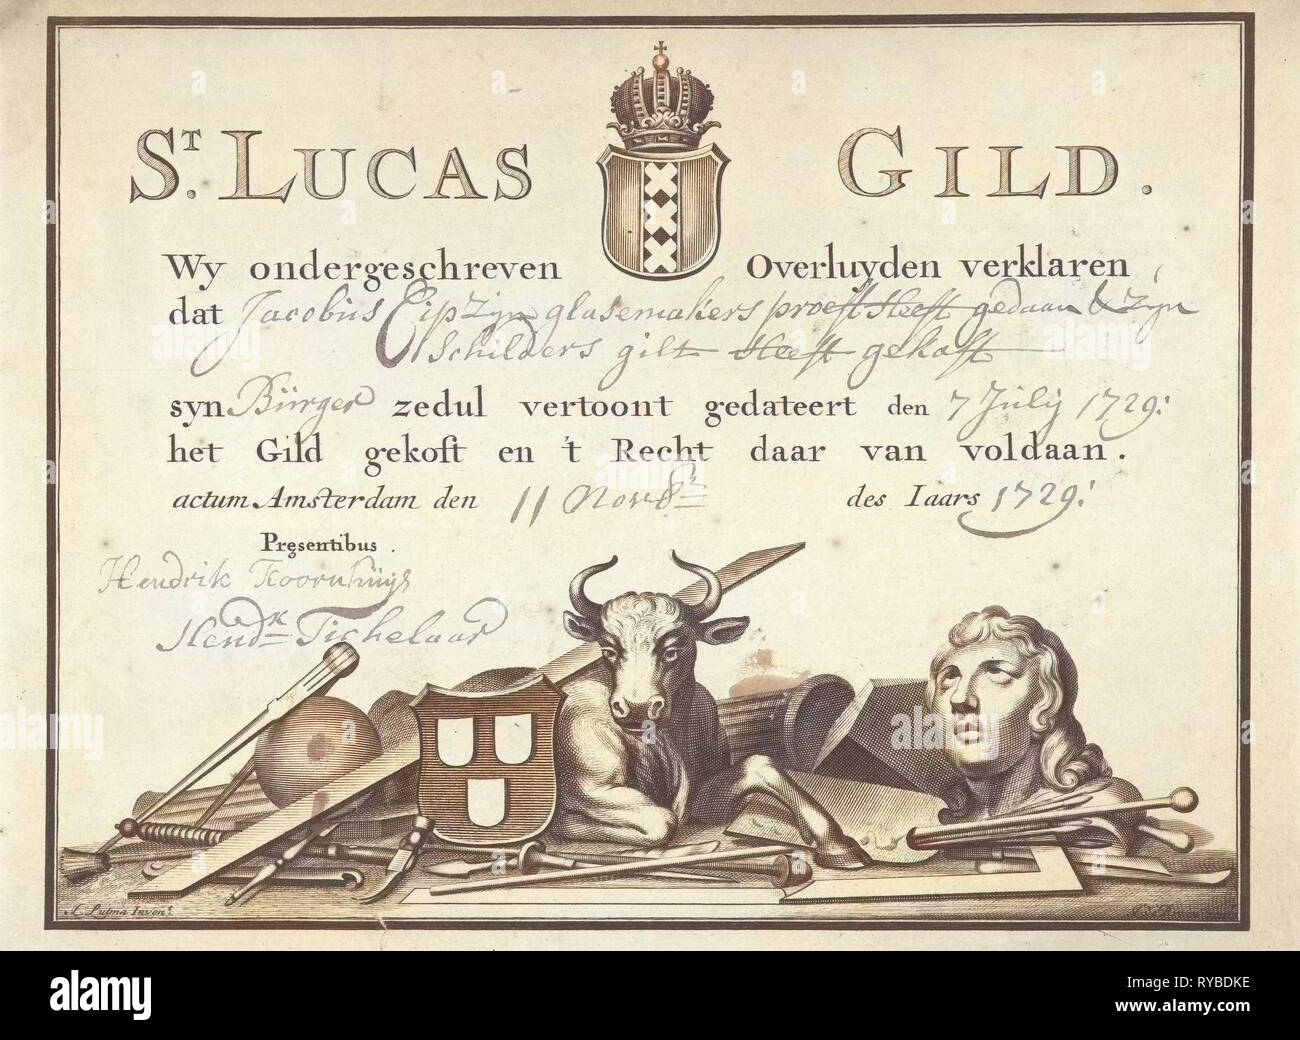 S.T LUCAS GILD.
Wy ondergeschreven Overluyden verklaren,
dat Jacobus zijn glasemakers proeft Heeft gedaan & zijn
Schilders gilt Heeft gekoft
syn Bürger zedul vertoont gedateert den 7 Jülij 1729:
het Gild gekoft en 't Recht daar van voldaan.
actum Amsterdam den 11 Novbr des Iaars 1729:
Presentibus.
Hendrik Koornhüijs
Hendk Tichelaar
Lutma Invent
alamy
Image ID: RYBDKE
www.alamy.com